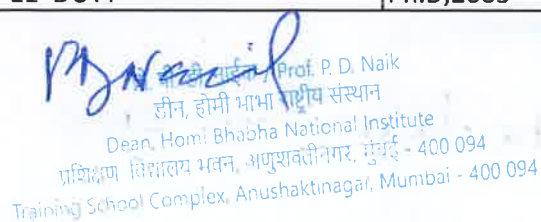 Ph.D,2005
Prof. P. D. Naik
डीन, होमी भाभा राष्ट्रीय संस्थान
Dean, Homi Bhabha National Institute
प्रशिक्षण विद्यालय भवन, अणुशक्तीनगर, मुंबई - 400 094
Training School Complex, Anushaktinagar, Mumbai - 400 094